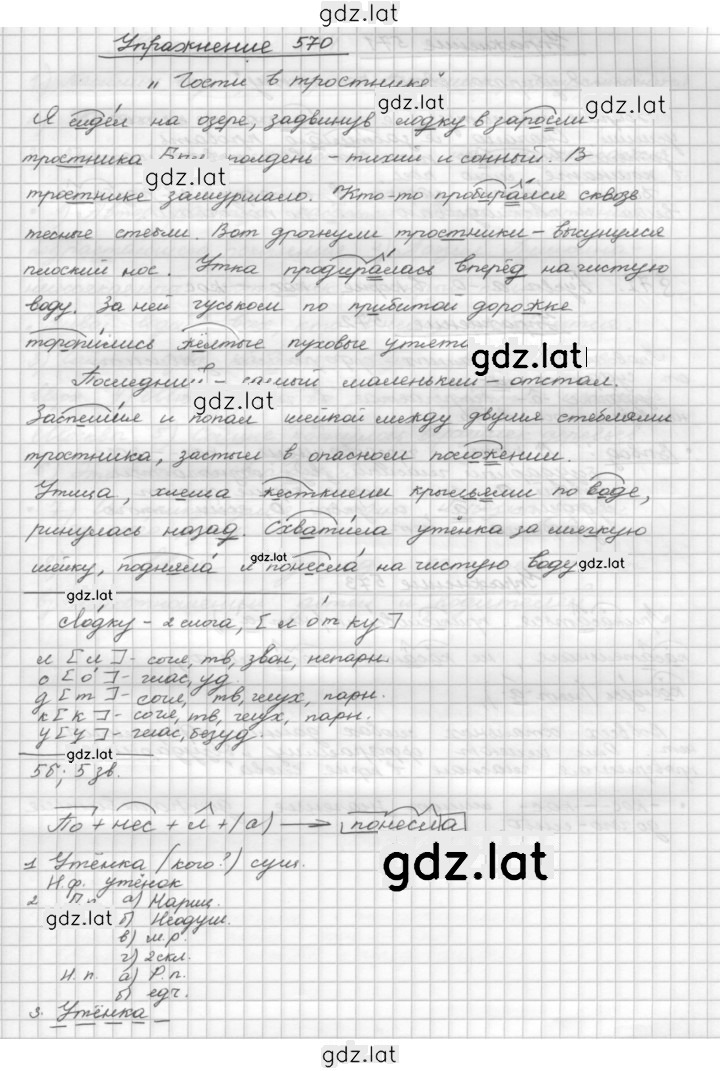 gdz.lat
Упражнение 570
„Гости в тростнике"
gdz.lat
gdz.lat
Я сидел на озере, задвинув лодку в заросли
тростника полдень – тихий и сонный. В
gdz.lat
тростнике зашуршало. Кто-то пробирался сквозь
тесные стебли. Вот дрогнули тростники – высунулся
плоский нос. Утка продиралась вперёд на чистую
воду. За ней гуськом по пробитой дорожке
торопились жёлтые пуховые утята
gdz.lat
Последний – самый маленький – отстал.
gdz.lat
Заспешил и попал шейкой между двумя стеблями
тростника, застыл в опасном положении.
Утица, хлеща жесткими крыльями по воде,
ринулась назад. Схватила утёнка за мягкую
gdz.lat
шейку, подняла и понесла на чистую воду
gdz.lat
gdz.lat
Лодку – 2 слога, [л о́т ку]
л [л] – согл, тв, звон, непарн.
о [о́] – глас, уд.
д [т] – согл, тв, глух, парн.
к [к] – согл, тв, глух, парн.
у [у] – глас, безуд.
gdz.lat
5б; 5 зв.
По + нес + л + (а) → понесла
gdz.lat
1 Утёнка (кого?) сущ.
Н.ф. утёнок
2 Пп а) Нариц.
gdz.lat
б) Неодуш.
в) м.р.
г) 2скл.
Н.п. а) Р.п.
б) едч.
3. Утёнка
gdz.lat